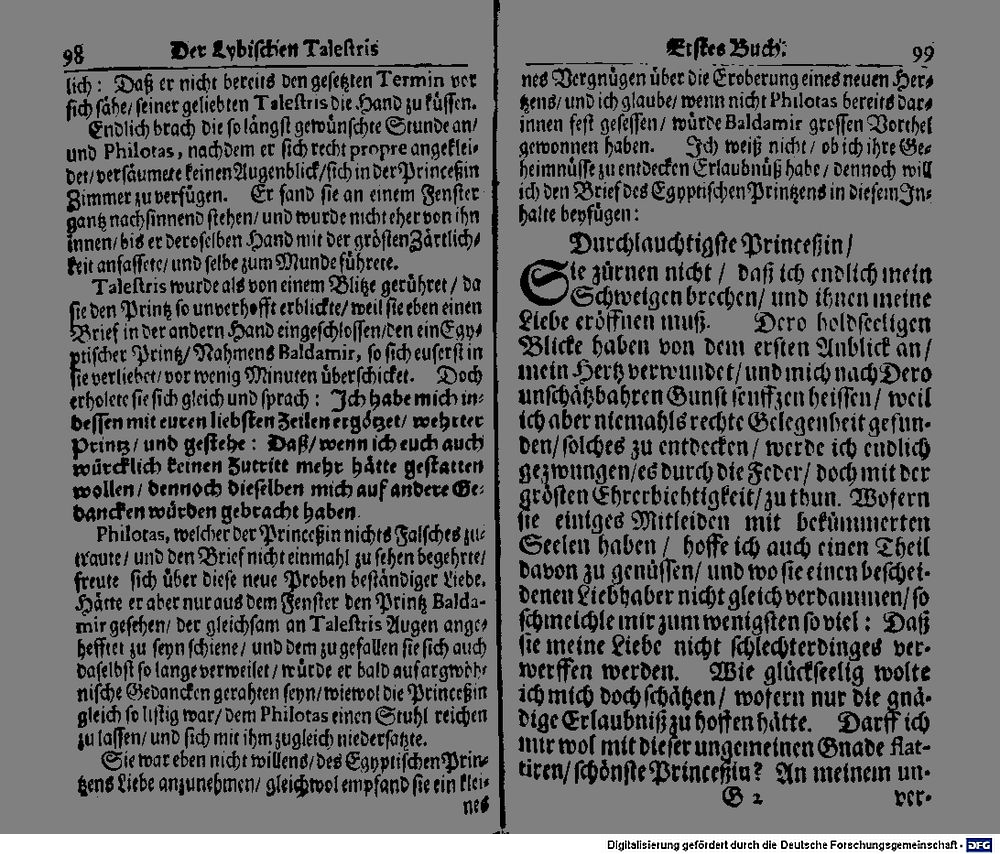 98 Der Lybischen Talestris
lich: Daß er nicht bereits den gesetzten Termin vor
sich sähe/ seiner geliebten Talestris die Hand zu küssen.
Endlich brach die so längst gewünschte Stunde an/
und Philotas, nachdem er sich recht propre angeklei-
det/ versäumete keinen Augenblick/ sich in der Princeßin
Zimmer zu verfügen. Er fand sie an einem Fenster
gantz nachsinnend stehen/ und wurde nicht eher von ihn
innen/ bis er deroselben Hand mit der grösten Zärtlich-
keit anfassete/ und selbe zum Munde führete.
Talestris wurde als von einem Blitze gerühret/ da
sie den Printz so unverhofft erblickte/ weil sie eben einen
Brief in der andern Hand eingeschlossen/ den ein Egy-
ptischer Printz/ Nahmens Baldamir, so sich euserst in
sie verliebet/ vor wenig Minuten überschicket. Doch
erholete sie sich gleich und sprach: Ich habe mich in-
dessen mit euren liebsten Zeilen ergötzet/ wehrter
Printz/ und gestehe: Daß/ wenn ich euch auch
würcklich keinen Zutritt mehr hätte gestatten
wollen/ dennoch dieselben mich auf andere Ge-
dancken würden gebracht haben.
Philotas, welcher der Princeßin nichts Falsches zu-
traute/ und den Brief nicht einmahl zu sehen begehrte/
freute sich über diese neue Proben beständiger Liebe.
Hätte er aber nur aus dem Fenster den Printz Balda-
mir gesehen/ der gleichsam an Talestris Augen ange-
hefftet zu seyn schiene/ und dem zu gefallen sie sich auch
daselbst so lange verweilet/ würde er bald auf argwöh-
nische Gedancken gerahten seyn/ wiewol die Princeßin
gleich so listig war/ dem Philotas einen Stuhl reichen
zu lassen/ und sich mit ihm zugleich niedersatzte.
Sie war eben nicht willens/ des Egyptischen Prin-
tzens Liebe anzunehmen/ gleichwol empfand sie ein klei-
nes
Erstes Buch. 99
nes Vergnügen über die Eroberung eines neuen Her-
tzens/ und ich glaube/ wenn nicht Philotas bereits dar-
innen fest gesessen/ würde Baldamir grossen Vorthel
gewonnen haben. Ich weiß nicht/ ob ich ihre Ge-
heimnüsse zu entdecken Erlaubnüß habe/ dennoch will
ich den Brief des Egyptischen Printzens in diesem In-
halte beyfügen:
Durchlauchtigste Princeßin/
Sie zürnen nicht/ daß ich endlich mein
Schweigen brechen/ und ihnen meine
Liebe eröffnen muß. Dero holdseeligen
Blicke haben von dem ersten Anblick an/
mein Hertz verwundet/ und mich nach Dero
unschätzbahren Gunst seuffzen heissen/ weil
ich aber niemahls rechte Gelegenheit gefun-
den/ solches zu entdecken/ werde ich endlich
gezwungen/ es durch die Feder/ doch mit der
grösten Ehrerbichtigkeit/ zu thun. Wofern
sie einiges Mitleiden mit bekümmerten
Seelen haben/ hoffe ich auch einen Theil
davon zu genüssen/ und wo sie einen beschei-
denen Liebhaber nicht gleich verdammen/ so
schmeichle mir zum wenigsten so viel: Daß
sie meine Liebe nicht schlechterdinges ver-
werffen werden. Wie glückseelig wolte
ich mich doch schätzen/ wofern nur die gnä-
dige Erlaubniß zu hoffen hätte. Darff ich
mir wol mit dieser ungemeinen Gnade flat-
tiren/ schönste Princeßin? An meinem un-
G 2 ver-
Digitalisierung gefördert durch die Deutsche Forschungsgemeinschaft - DFG